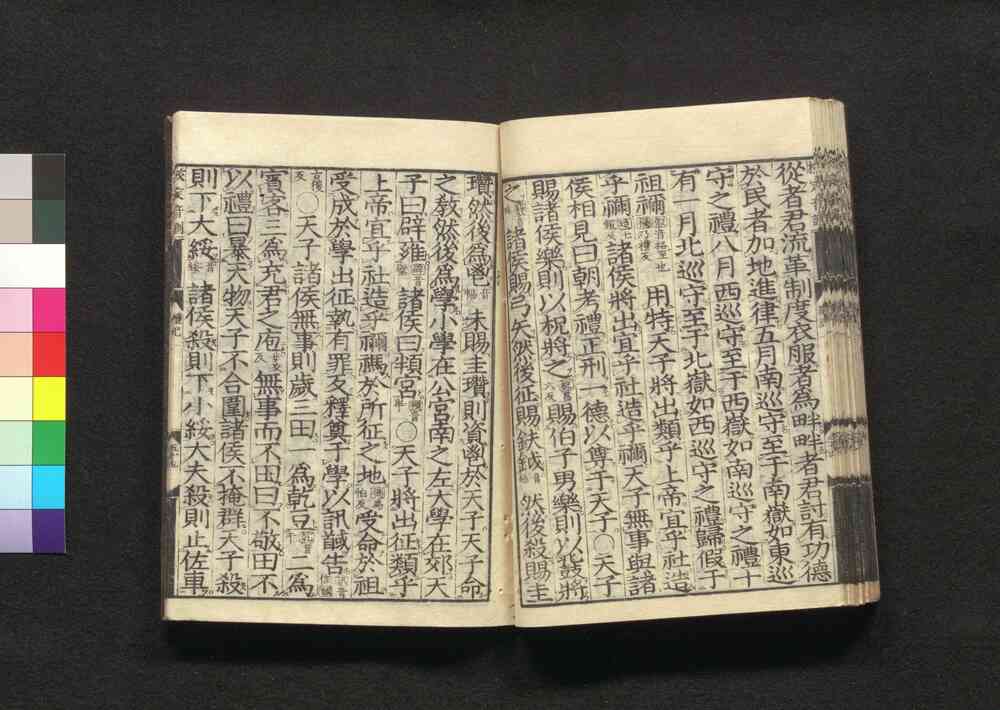 從者君流革制度衣服者為畔畔者君討有功德
於民者加地進律五月南巡守至于南嶽如東巡
守之禮八月西巡守至于西嶽如南巡守之禮十
有一月北巡守至于北嶽如西巡守之禮歸假于
祖禰用特天子將出類乎上帝宜乎社造
乎禰諸侯將出宜乎社造乎禰天子無事與諸
侯相見曰朝考禮正刑一德以尊于天子○天子
賜諸侯樂則以柷將之賜伯子男樂則以鼗將
之諸侯賜弓矢然後征賜鈇鉞然後殺賜圭
瓚然後為鬯未賜圭瓚則資鬯於天子天子命
之教然後為學小學在公宮南之左大學在郊天
子曰辟雍諸侯曰頖宮○天子將出征類乎
上帝宜乎社造乎禰禡於所征之地受命於祖
受成於學出征執有罪反釋奠于學以訊馘告
○天子諸侯無事則歲三田一為乾豆二為
賓客三為充君之庖無事而不田曰不敬田不
以禮曰暴天物天子不合圍諸侯不掩群天子殺
則下大綏諸侯殺則下小綏大夫殺則止佐車